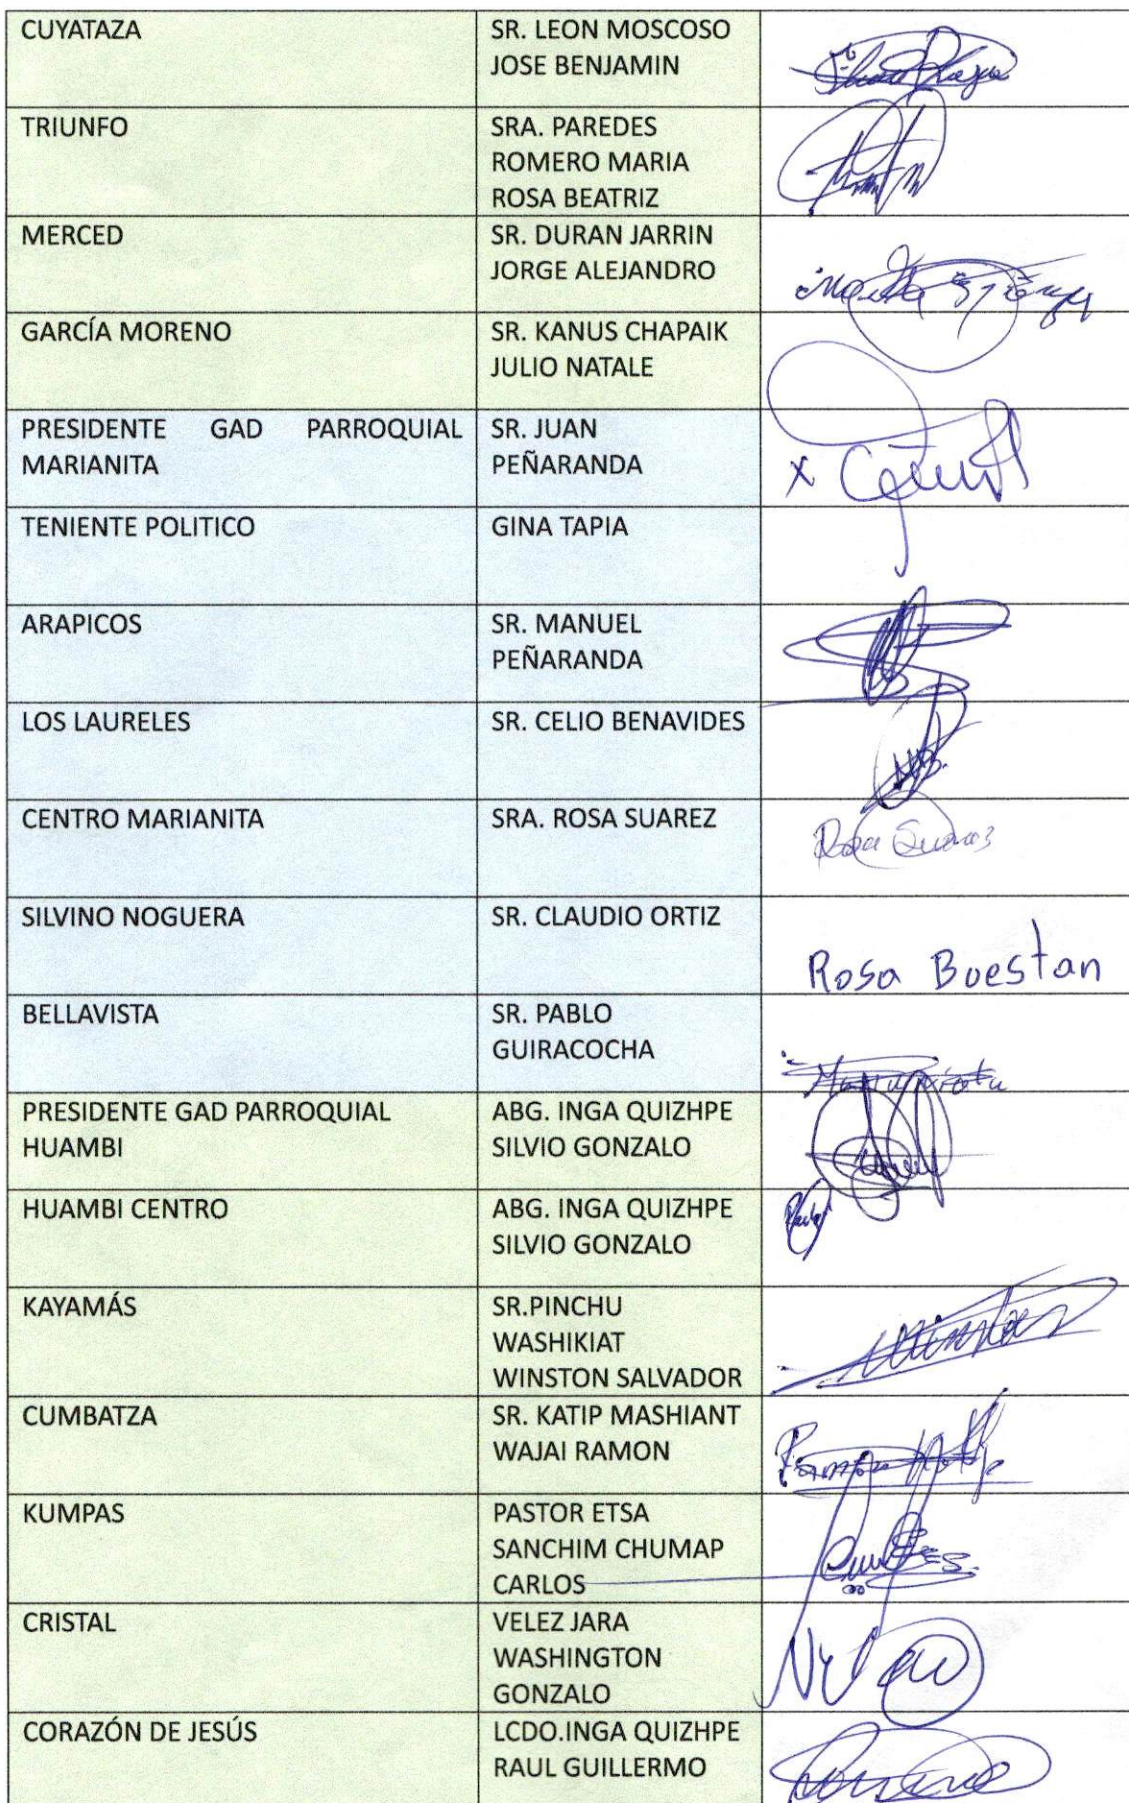 CUYATAZA
SR. LEON MOSCOSO
JOSE BENJAMIN
TRIUNFO
SRA. PAREDES
ROMERO MARIA
ROSA BEATRIZ
MERCED
SR. DURAN JARRIN
JORGE ALEJANDRO
GARCÍA MORENO
SR. KANUS CHAPAIK
JULIO NATALE
PRESIDENTE GAD PARROQUIAL
MARIANITA
SR. JUAN
PEÑARANDA
X
TENIENTE POLITICO
GINA TAPIA
ARAPICOS
SR. MANUEL
PEÑARANDA
LOS LAURELES
SR. CELIO BENAVIDES
CENTRO MARIANITA
SRA. ROSA SUAREZ
Rosa Suarez
SILVINO NOGUERA
SR. CLAUDIO ORTIZ
Rosa Buestan
BELLAVISTA
SR. PABLO
GUIRACOCHA
PRESIDENTE GAD PARROQUIAL
HUAMBI
ABG. INGA QUIZHPE
SILVIO GONZALO
HUAMBI CENTRO
ABG. INGA QUIZHPE
SILVIO GONZALO
KAYAMÁS
SR.PINCHU
WASHIKIAT
WINSTON SALVADOR
Winston
CUMBATZA
SR. KATIP MASHIANT
WAJAI RAMON
Ramon Katip
KUMPAS
PASTOR ETSA
SANCHIM CHUMAP
CARLOS
CRISTAL
VELEZ JARA
WASHINGTON
GONZALO
CORAZÓN DE JESÚS
LCDO.INGA QUIZHPE
RAUL GUILLERMO